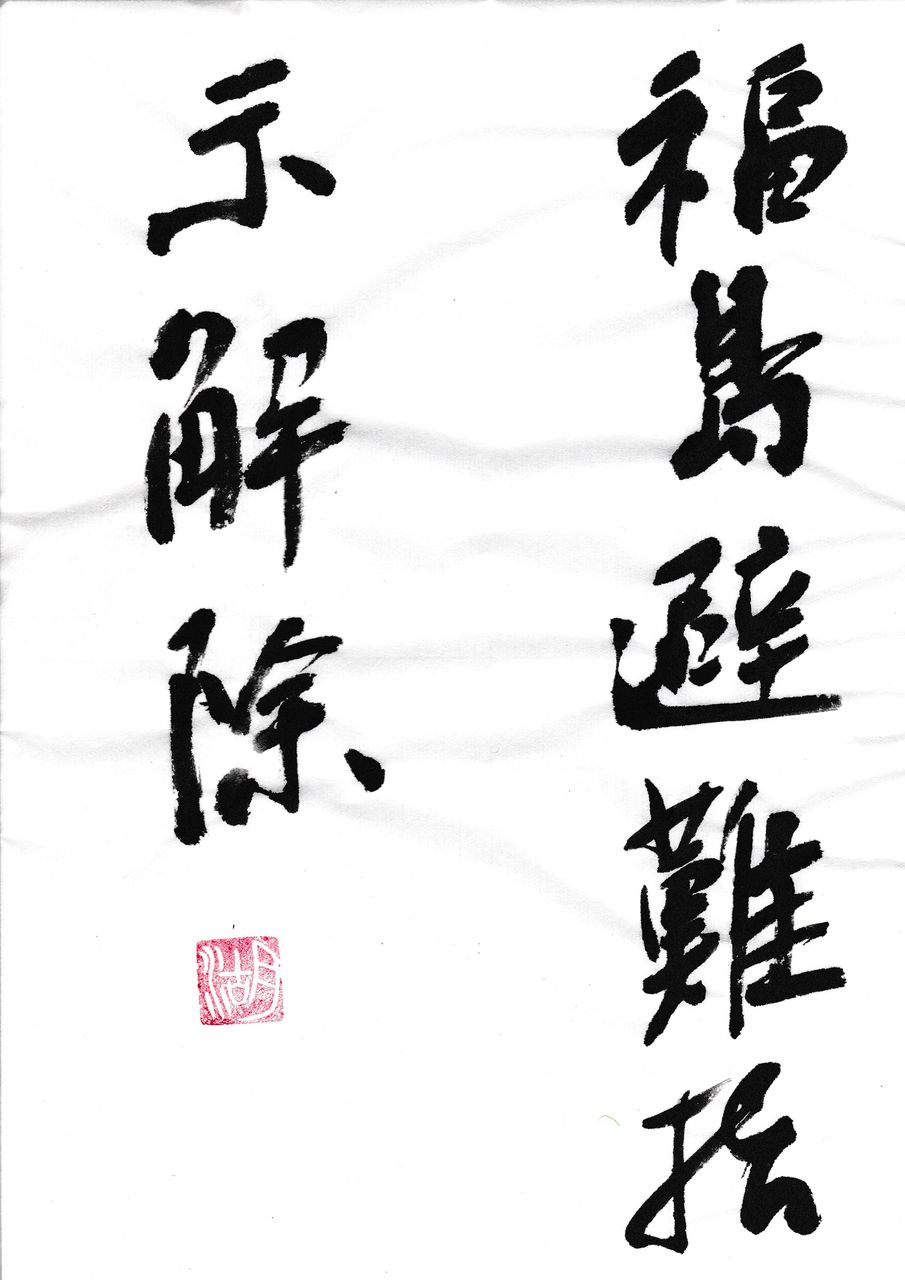 福島避難指
示解除
湖